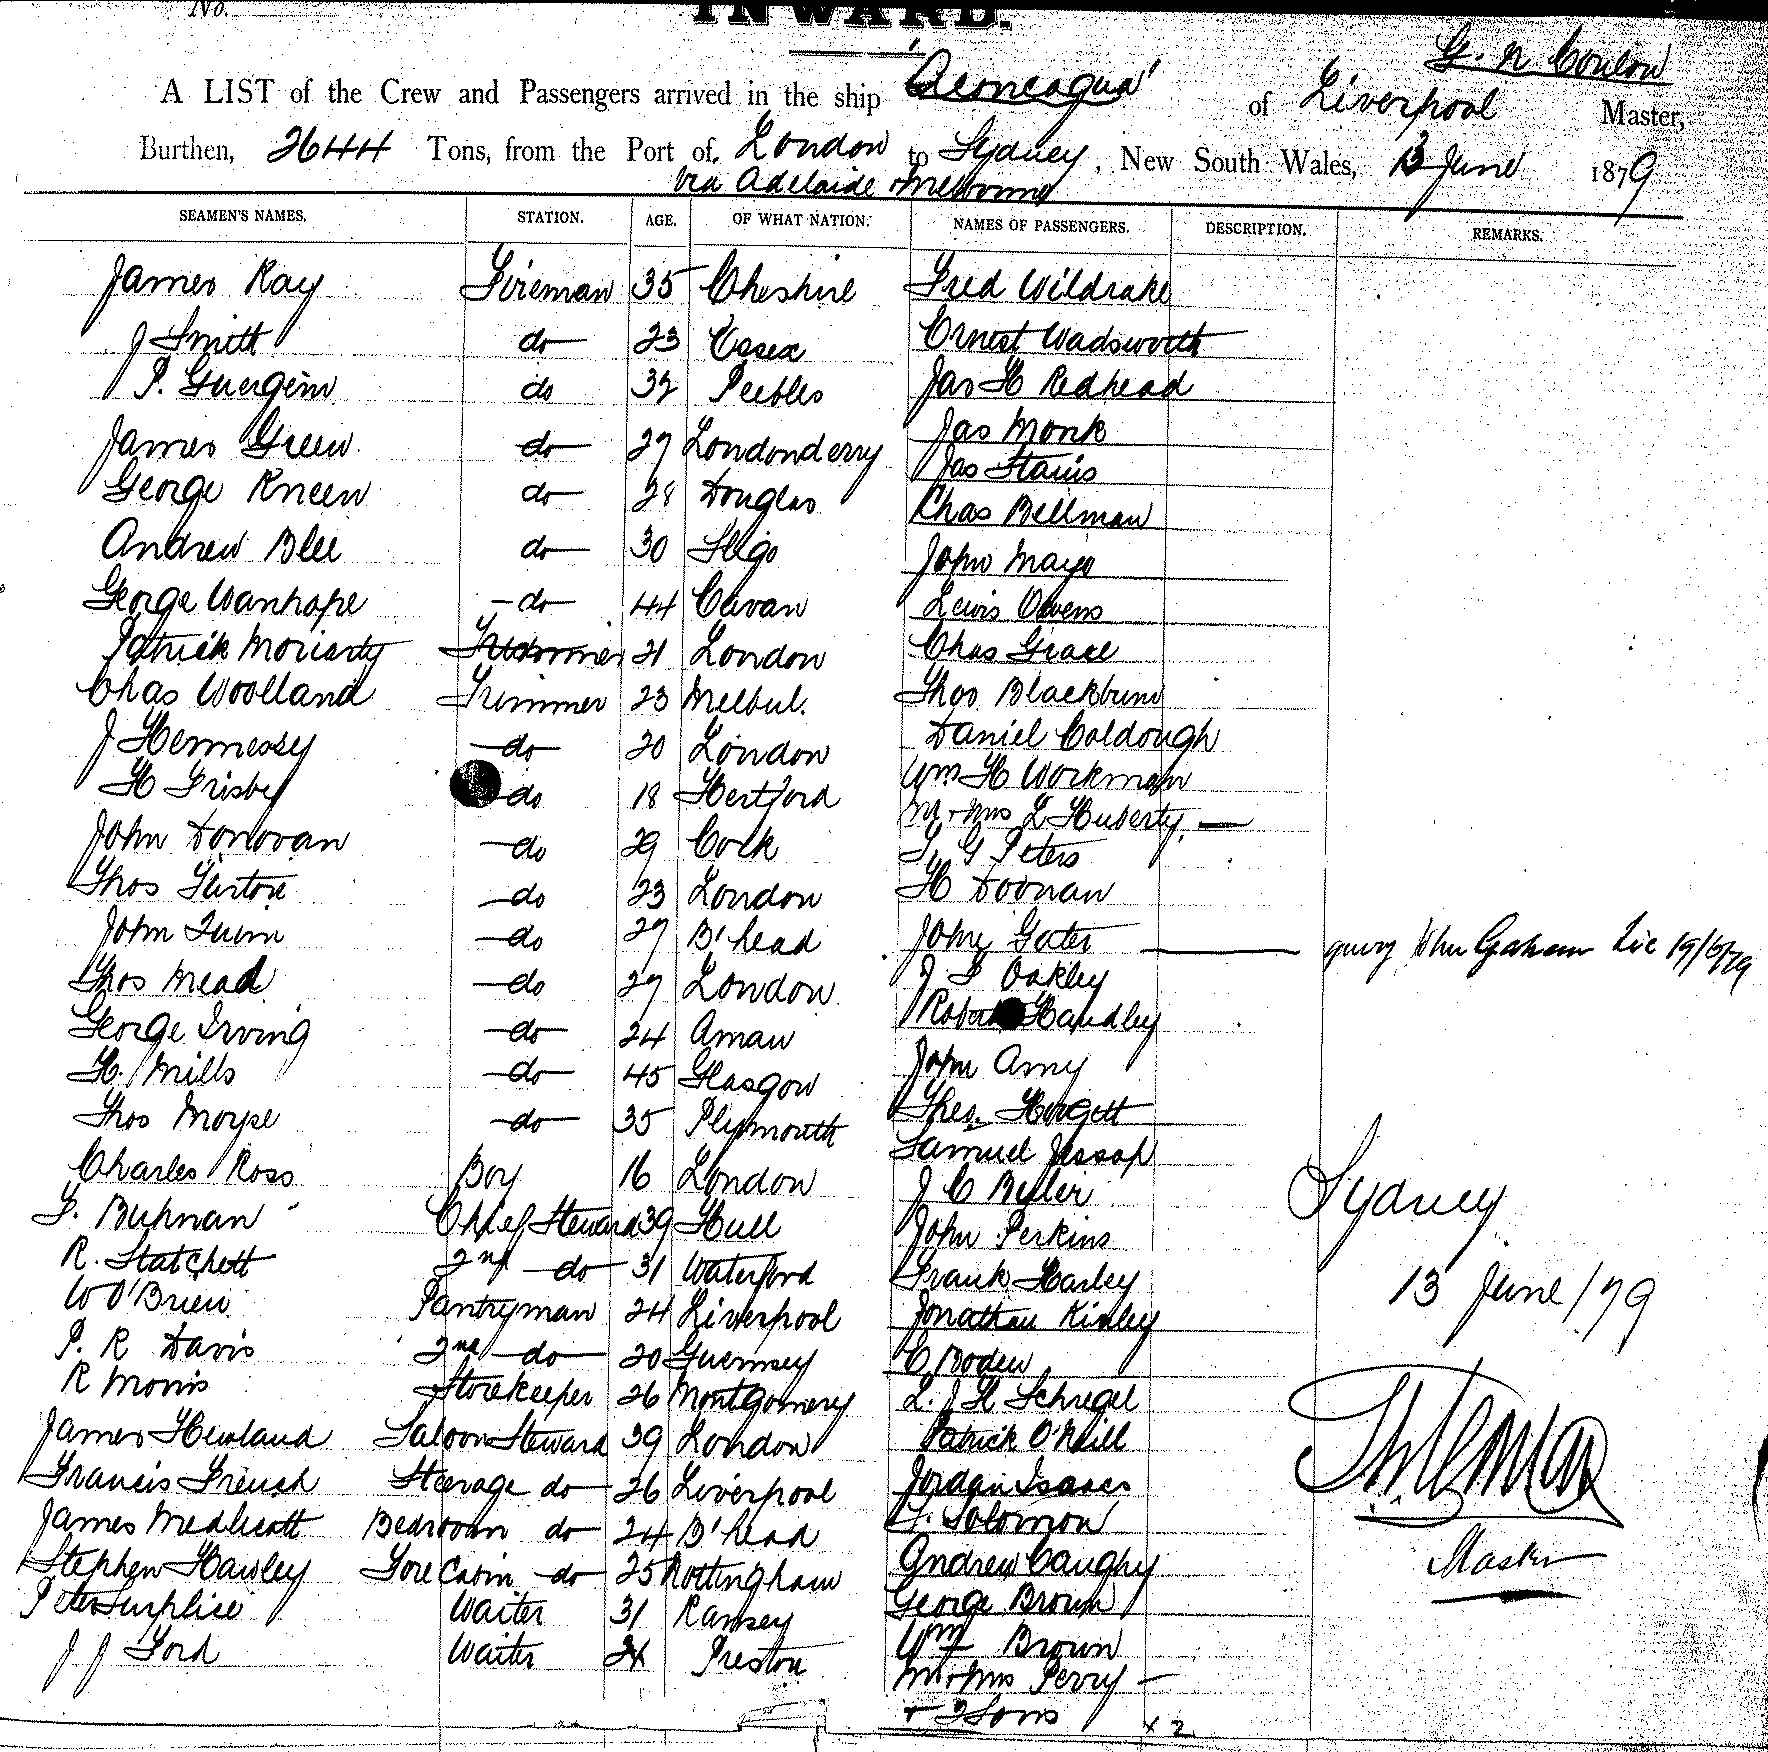 No.
INWARD.
G. N Conlon
A LIST of the Crew and Passengers arrived in the ship Aconcagua of Liverpool Master,
Burthen, 2644 Tons, from the Port of London to Sydney, New South Wales, 13 June 1879
via Adelaide + Melbourne
SEAMEN'S NAMES. STATION. AGE. OF WHAT NATION. NAMES OF PASSENGERS. DESCRIPTION. REMARKS.
James Ray Fireman 35 Cheshire Fred Wildrake
J Smith do 23 Essex Ernest Wadsworth
P. do 32 Peebles Jas H Redhead
James Green do 27 Londonderry Jas Monk
Jas
George Kneen do 28 Douglas Chas Bellman
Andrew Blee do 30 Sligo John Mayo
George Wanhope do 44 Cavan Lewis Owens
Patrick Moriarty 21 London Chas Grace
Chas Woolland Trimmer 23 Melbul. Thos Blackburn
J Hennessy do 20 London Daniel Coldough
H Frisby do 18 Hertford Wm H Workman
M + Mrs L Huberty
John Donovan do 29 Cork G Peters
Thos do 23 London H Doonan
John Quinn do 27 B'head John Gater query John Graham Lic 19/6/79
Thos Mead do 27 London J Oakley
George Irving do 24 Aman Robert Handley
H. Mills do 45 Glasgow John Amy
Thos Moyse do 35 Plymouth Thos.
Samuel Jessop
Charles Ross Boy 16 London J C
Sydney
Chief Steward 39 Hull John Perkins
R. Statchett 2nd do 31 Waterford Frank Harley
13 June /79
W O'Brien Pantryman 24 Liverpool Jonathan
P. R Davis 2nd do 20 Guernsey C Boden
R Morris Storekeeper 26 Montgomery L. J H Schregel
James Hewland Saloon Steward 39 London Patrick O'Neill
Francis French Steerage do 26 Liverpool Jordan Isaacs
James Medlicott Bedroom do 24 B'head Solomon
Stephen Hawley Fore Cabin do 25 Nottingham Andrew Caughy
Master
Peter Surplice Waiter 31 Ramsey George Brown
J J Ford Waiter 24 Preston Wm Brown
M + Mrs Perry
+ 2 Sons x 2